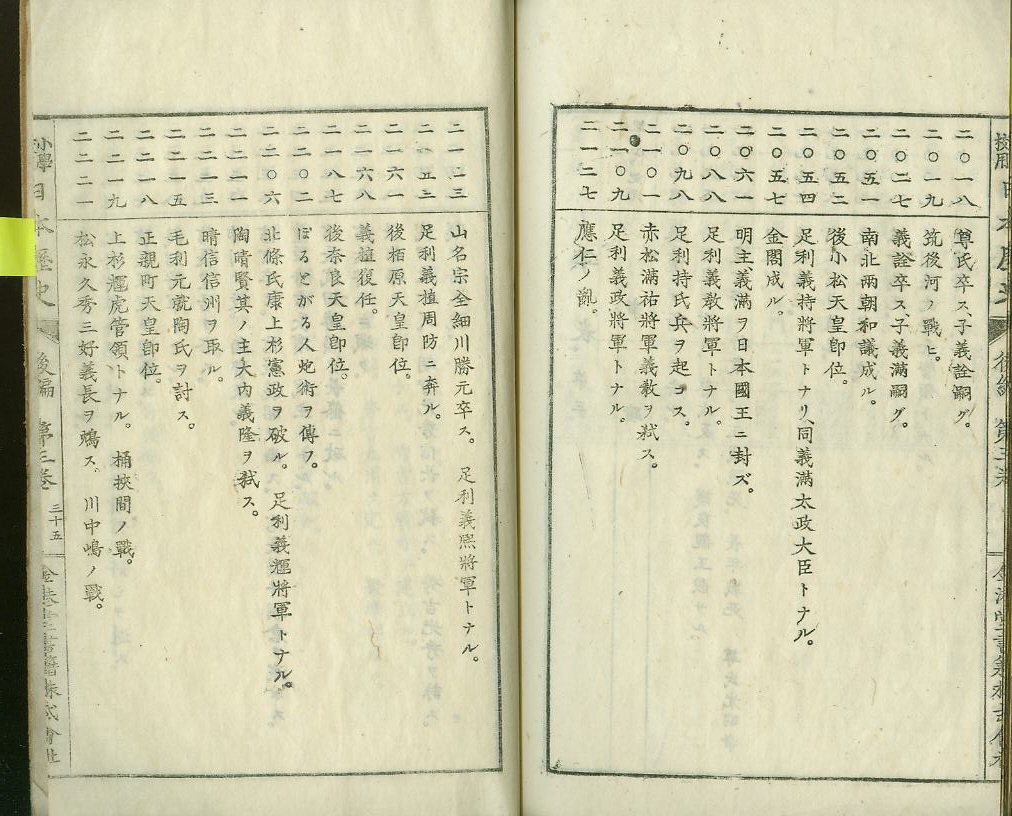 二〇一八 尊氏卒ス、子義詮嗣グ。
二〇一九 筑後河ノ戰ヒ。
二〇二七 義詮卒ス子義滿嗣グ。
二〇五一 南北兩朝和議成ル。
二〇五二 後小松天皇卽位。
二〇五四 足利義持將軍トナリ、同義滿太政大臣トナル。
二〇五七 金閣成ル。
二〇六一 明主義滿ヲ日本國王ニ封ズ。
二〇八八 足利義敎將軍トナル。
二〇九八 足利持氏兵ヲ起コス。
二一〇一 赤松滿祐將軍義敎ヲ弑ス。
二一〇九 足利義政將軍トナル。
二一二七 應仁ノ亂。
二一三三 山名宗全細川勝元卒ス。 足利義熈將軍トナル。
二一五三 足利義植周防ニ奔ル。
二一六一 後柏原天皇卽位。
二一六八 義植復任。
二一八七 後奈良天皇卽位。
二二〇二 ぽるとがる人炮術ヲ傳フ。
二二〇六 北條氏康上杉憲政ヲ破ル。 足利義輝將軍トナル。
二二一一 陶晴賢其ノ主大內義隆ヲ弑ス。
二二一三 晴信信州ヲ取ル。
二二一五 毛利元就陶氏ヲ討ス。
二二一八 正親町天皇卽位。
二二一九 上杉輝虎管領トナル。 桶挾間ノ戰。
二二二一 松永久秀三好義長ヲ鴆ス。 川中嶋ノ戰。
小學日本歷史 後編 第三卷 三十五 金港堂書籍株式會社